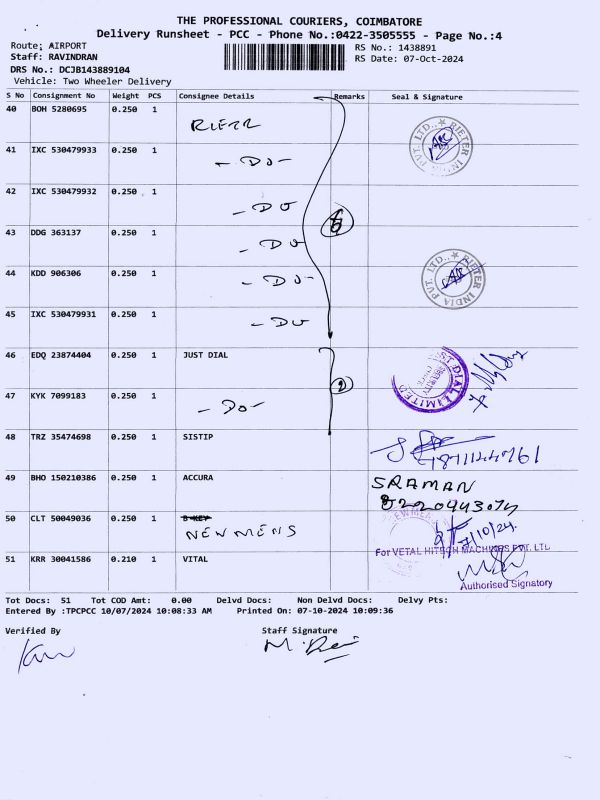 THE PROFESSIONAL COURIERS, COIMBATORE
Delivery Runsheet - PCC - Phone No.:0422-3505555 - Page No.:4
Route; AIRPORT
Staff: RAVINDRAN
DRS No.: DCJB143889104
Vehicle: Two Wheeler Delivery
RS No.: 1438891
RS Date: 07-Oct-2024
S No Consignment No Weight PCS Consignee Details Remarks Seal & Signature
40 BOH 5280695 0.250 1 RIETR
RIETER INDIA PVT. LTD.
41 IXC 530479933 0.250 1 - DO -
42 IXC 530479932 0.250 1 - DO
43 DDG 363137 0.250 1 - DO
44 KDD 906306 0.250 1 - DO -
RIETER INDIA PVT. LTD.
45 IXC 530479931 0.250 1 - DO
46 EDQ 23874404 0.250 1 JUST DIAL 2
ST DIAL LIMITED
SECURITY
47 KYK 7099183 0.250 1 - DO -
48 TRZ 35474698 0.250 1 SISTIP
49 BHO 150210386 0.250 1 ACCURA SRAMAN
50 CLT 50049036 0.250 1 B KEY
NEWMENS 7/10/24.
For VETAL HITECH MACHINES PVT. LTD
51 KRR 30041586 0.210 1 VITAL
Authorised Signatory
Tot Docs: 51 Tot COD Amt: 0.00 Delvd Docs: Non Delvd Docs: Delvy Pts:
Entered By :TPCPCC 10/07/2024 10:08:33 AM Printed On: 07-10-2024 10:09:36
Verified By Staff Signature